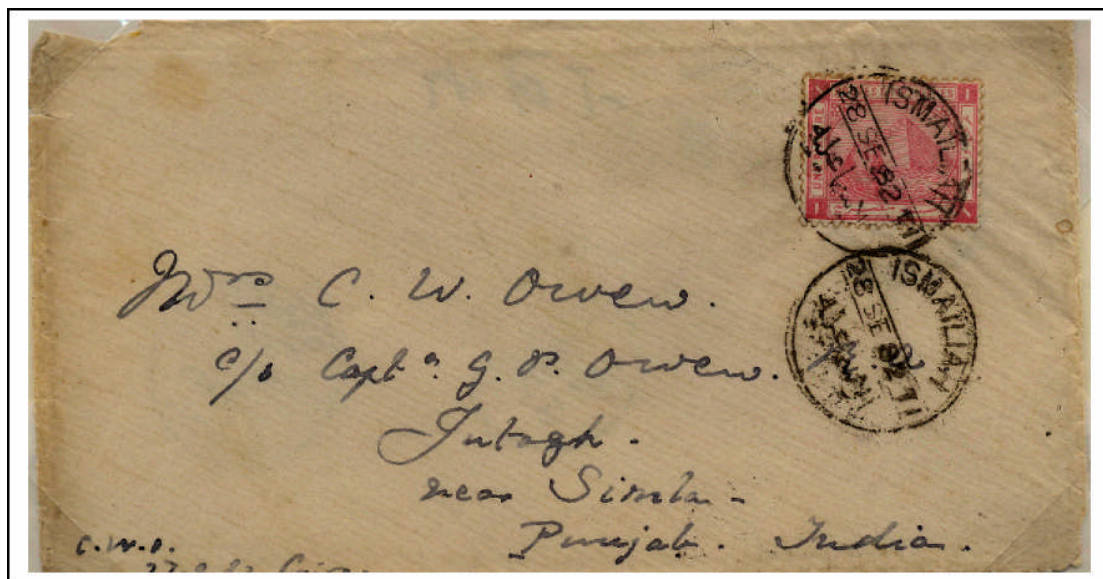 ISMAILIAH
28 SE 82 T I
ISMAILIAH
28 SE 82 T I
Mrs C. W. Owen.
c/o Capt n. G. P. Owen.
Jutogh.
near Simla -
Punjab. India.
C.W.O.